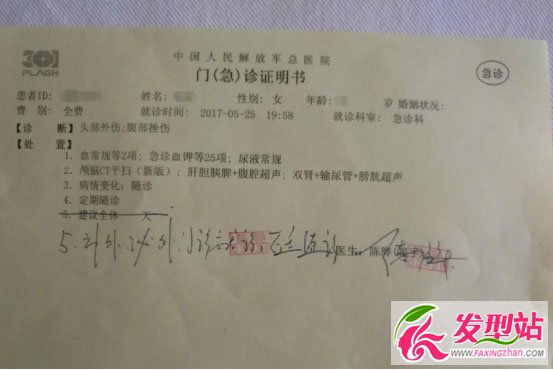 301
PLAGH
中国人民解放军总医院
门(急)诊证明书
急诊
患者ID: 姓名: 性别: 女 年龄: 岁 婚姻状况:
费 别: 全费 就诊时间: 2017-05-25 19:58 就诊科室: 急诊科
【诊 断】头部外伤;腹部挫伤
【处 置】
1. 血常规等2项; 急诊血钾等25项; 尿液常规
2. 颅脑CT平扫(新版); 肝胆胰脾+腹腔超声; 双肾+输尿管+膀胱超声
3. 病情变化: 随诊
4. 定期随诊
5. 建议全休 天
5. 医生: 陈骅
发型站
www.FAXINGZHAN.com